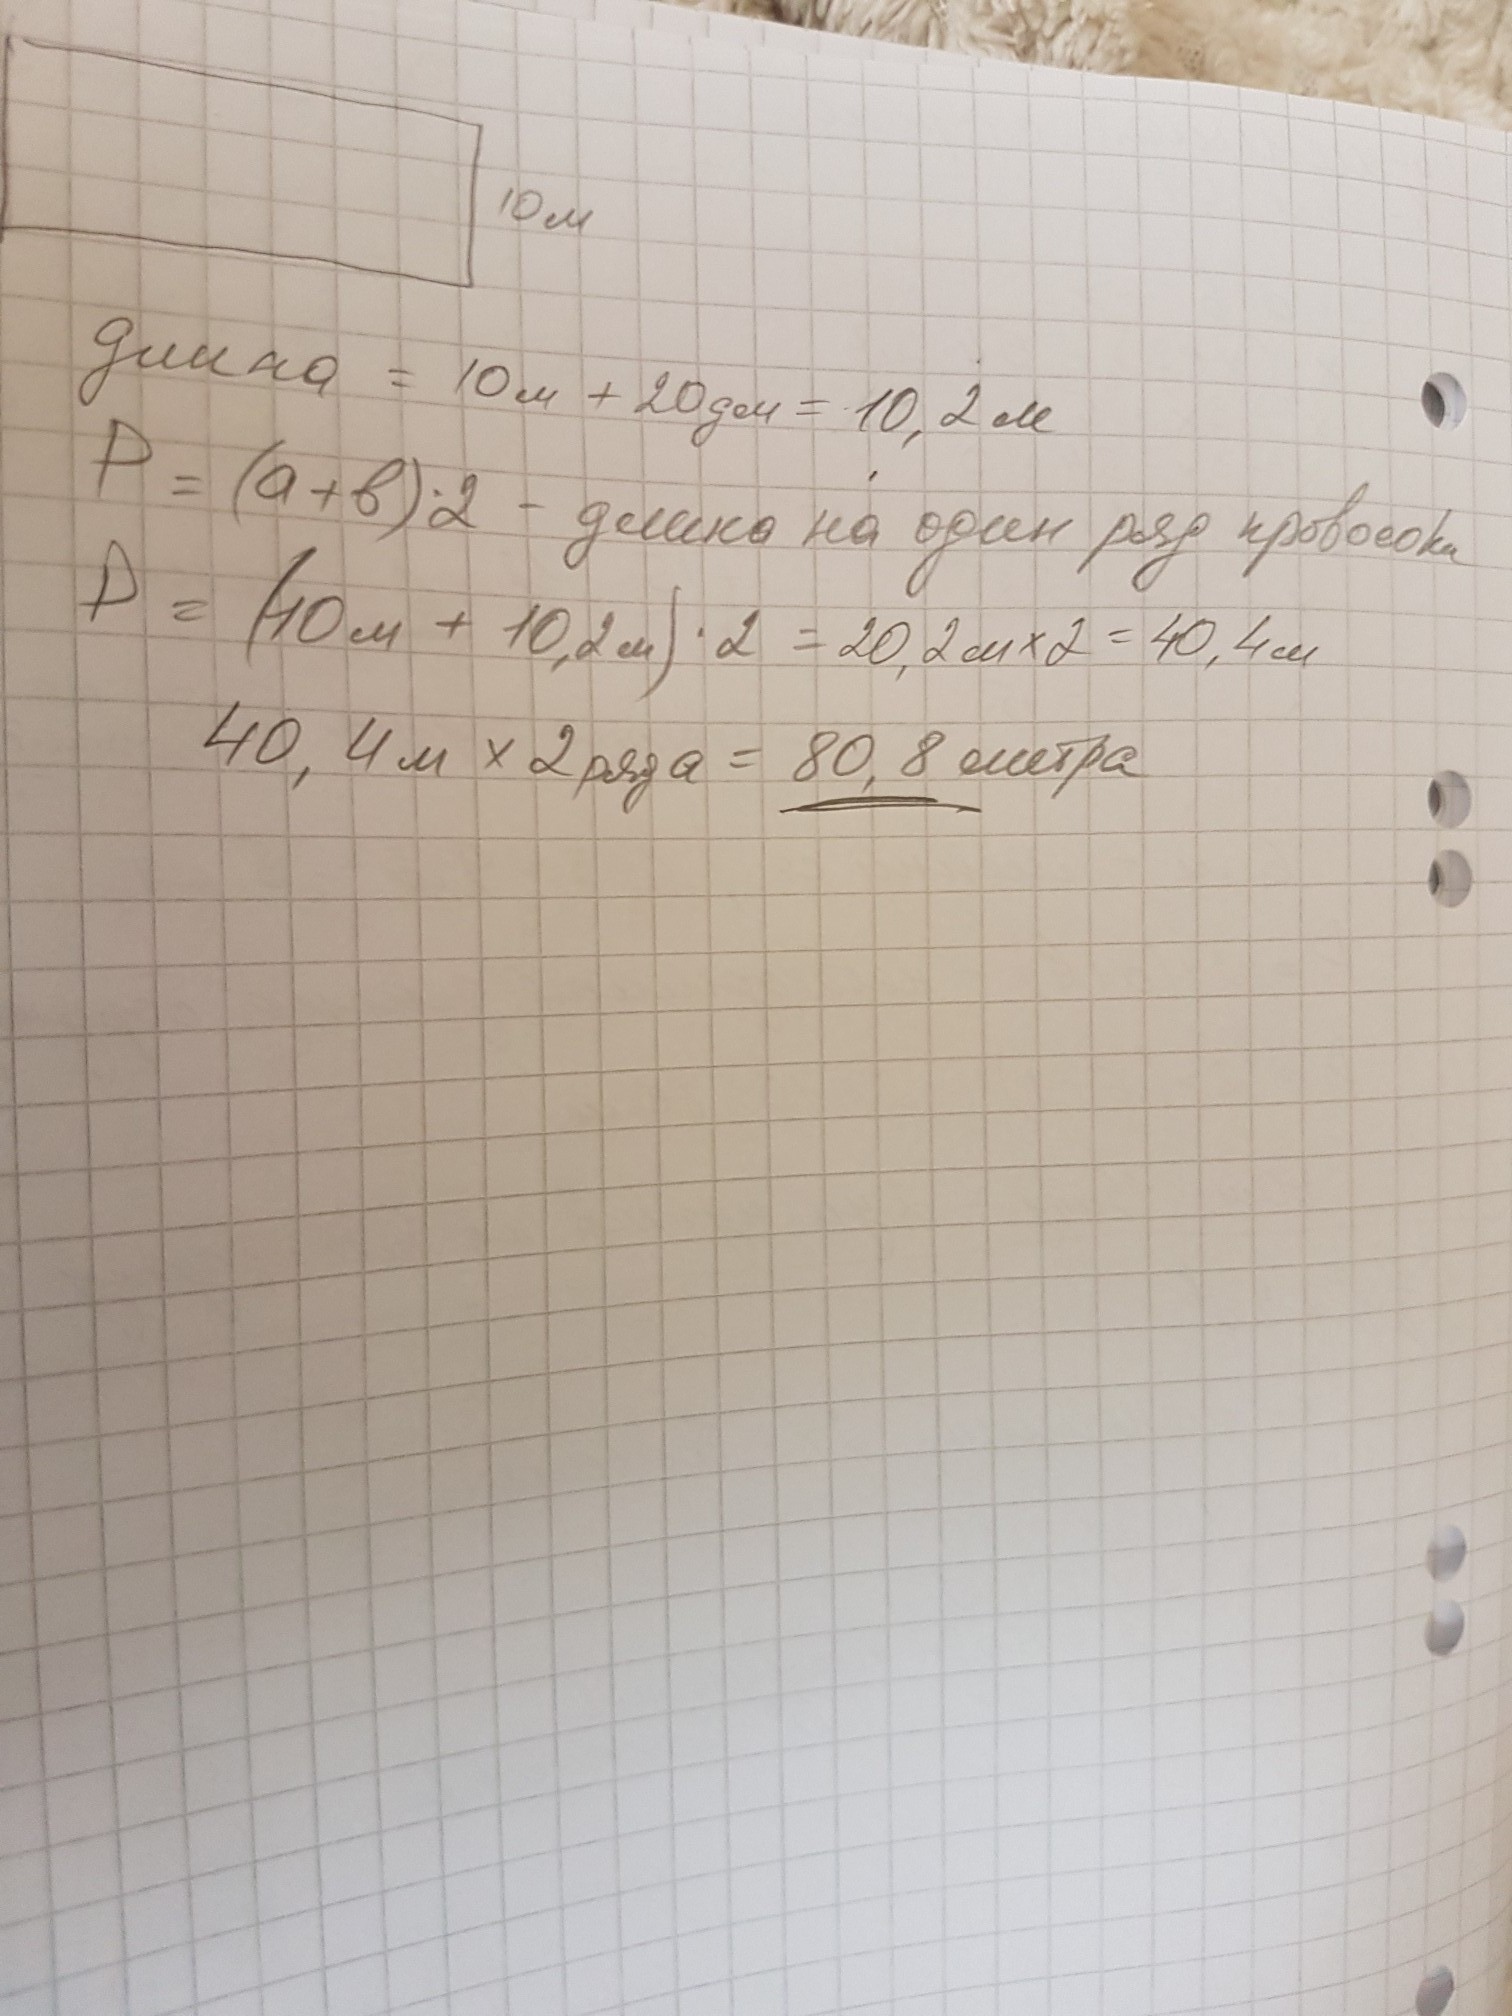 10м
длина = 10м + 20дм = 10,2м
P = (а+в)·2 - длина на один ряд проволоки
P = (10м + 10,2м)·2 = 20,2м×2 = 40,4м
40,4м × 2 ряда = 80,8 метра